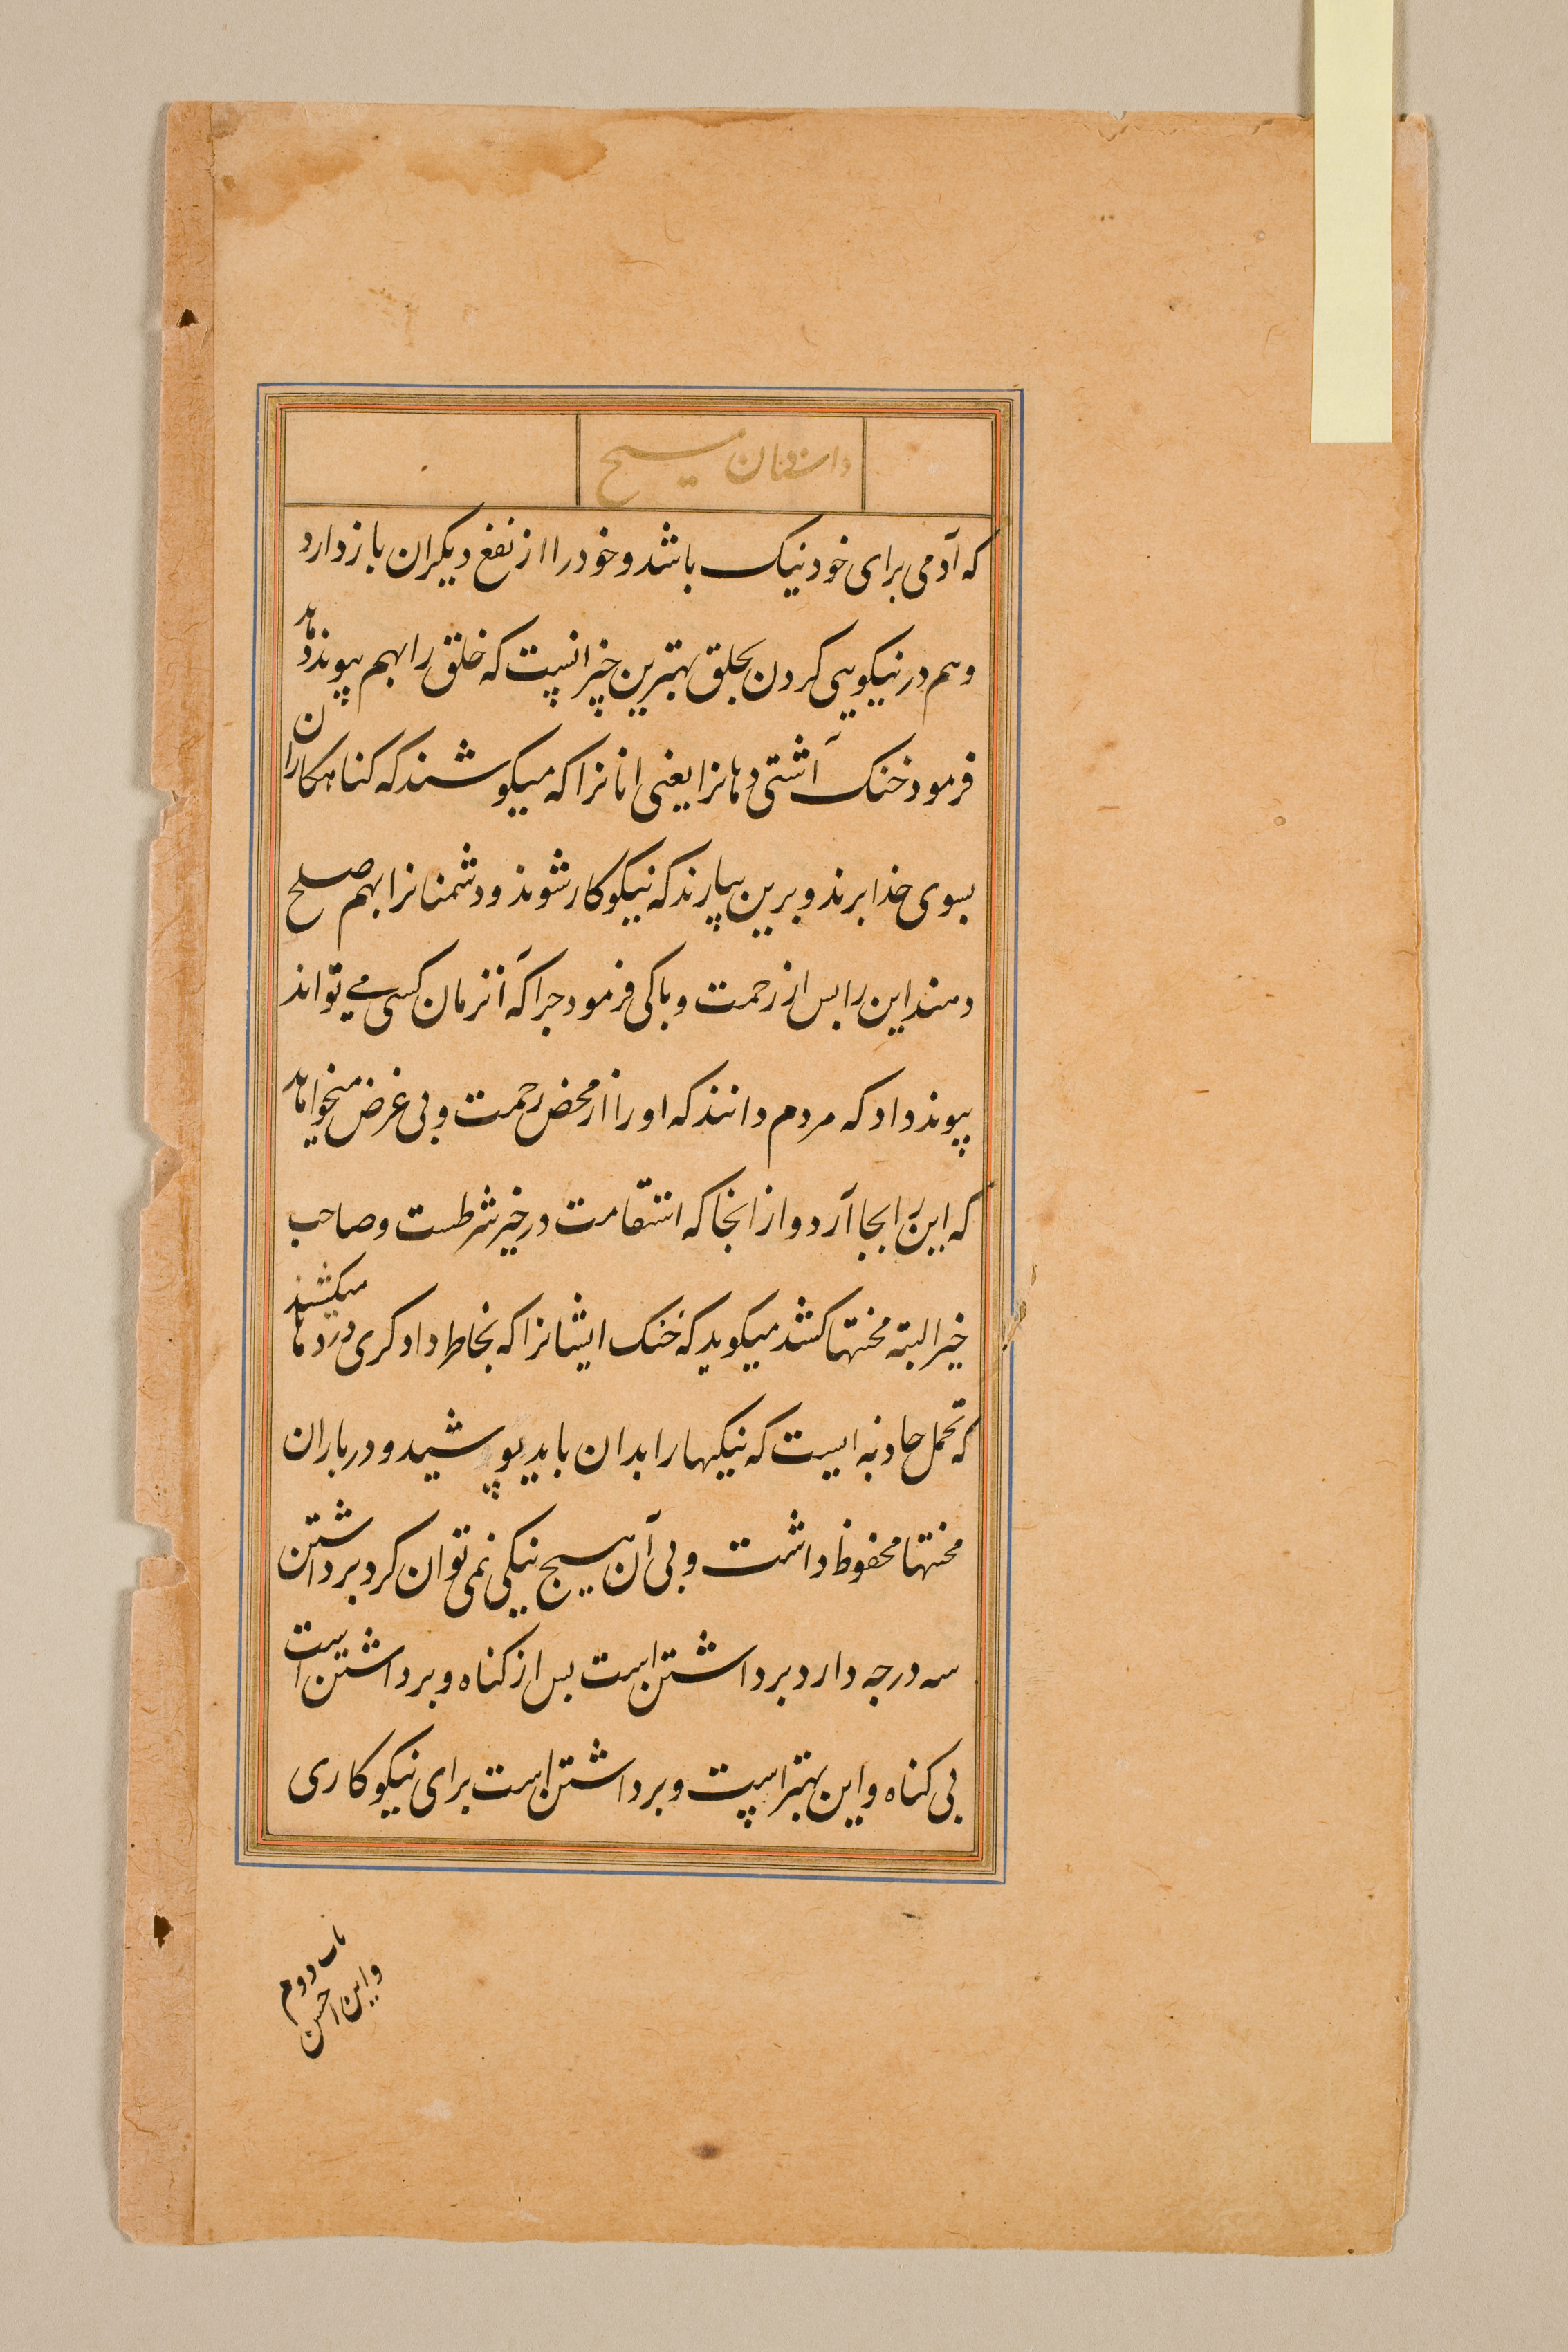 داستان مسیح
که آدمی برای خود نیک باشد و خود را از نفع دیکران باز دارد
و هم در نیکویی کردن بخلق بهترین چیز انست که خلق را بهم پیوند دهد
فرمود خنک آشتی دهانرا یعنی انانرا که میکوشند که کناهکارانرا
بسوی خدا برند و برین بیارند که نیکوکار شوند و دشمنانرا بهم صلح
دهند این را بس از رحمت و باکی فرمود جرا که آنزمان کسی می تواند
پیوند داد که مردم دانند که او را از محض رحمت و بی غرض میخواهد
که این را بجا آرد و از انجا که استقامت در خیر شرطست و صاحب
خیر البته محنتها کشد میکوید که خنک ایشانرا که بخاطر دادکری دردها میکشند
که تحمل جادنه ایست که نیکیها را بدان باید پوشید و در باران
محنتها محفوظ داشت و بی آن هیسج نیکی نمی توان کرد برداشتن
سه درجه دارد برداشتن است بس از کناه و برداشتن است
بی کناه و این بهتر است و برداشتن است برای نیکوکاری
باب دوم
و این احسن